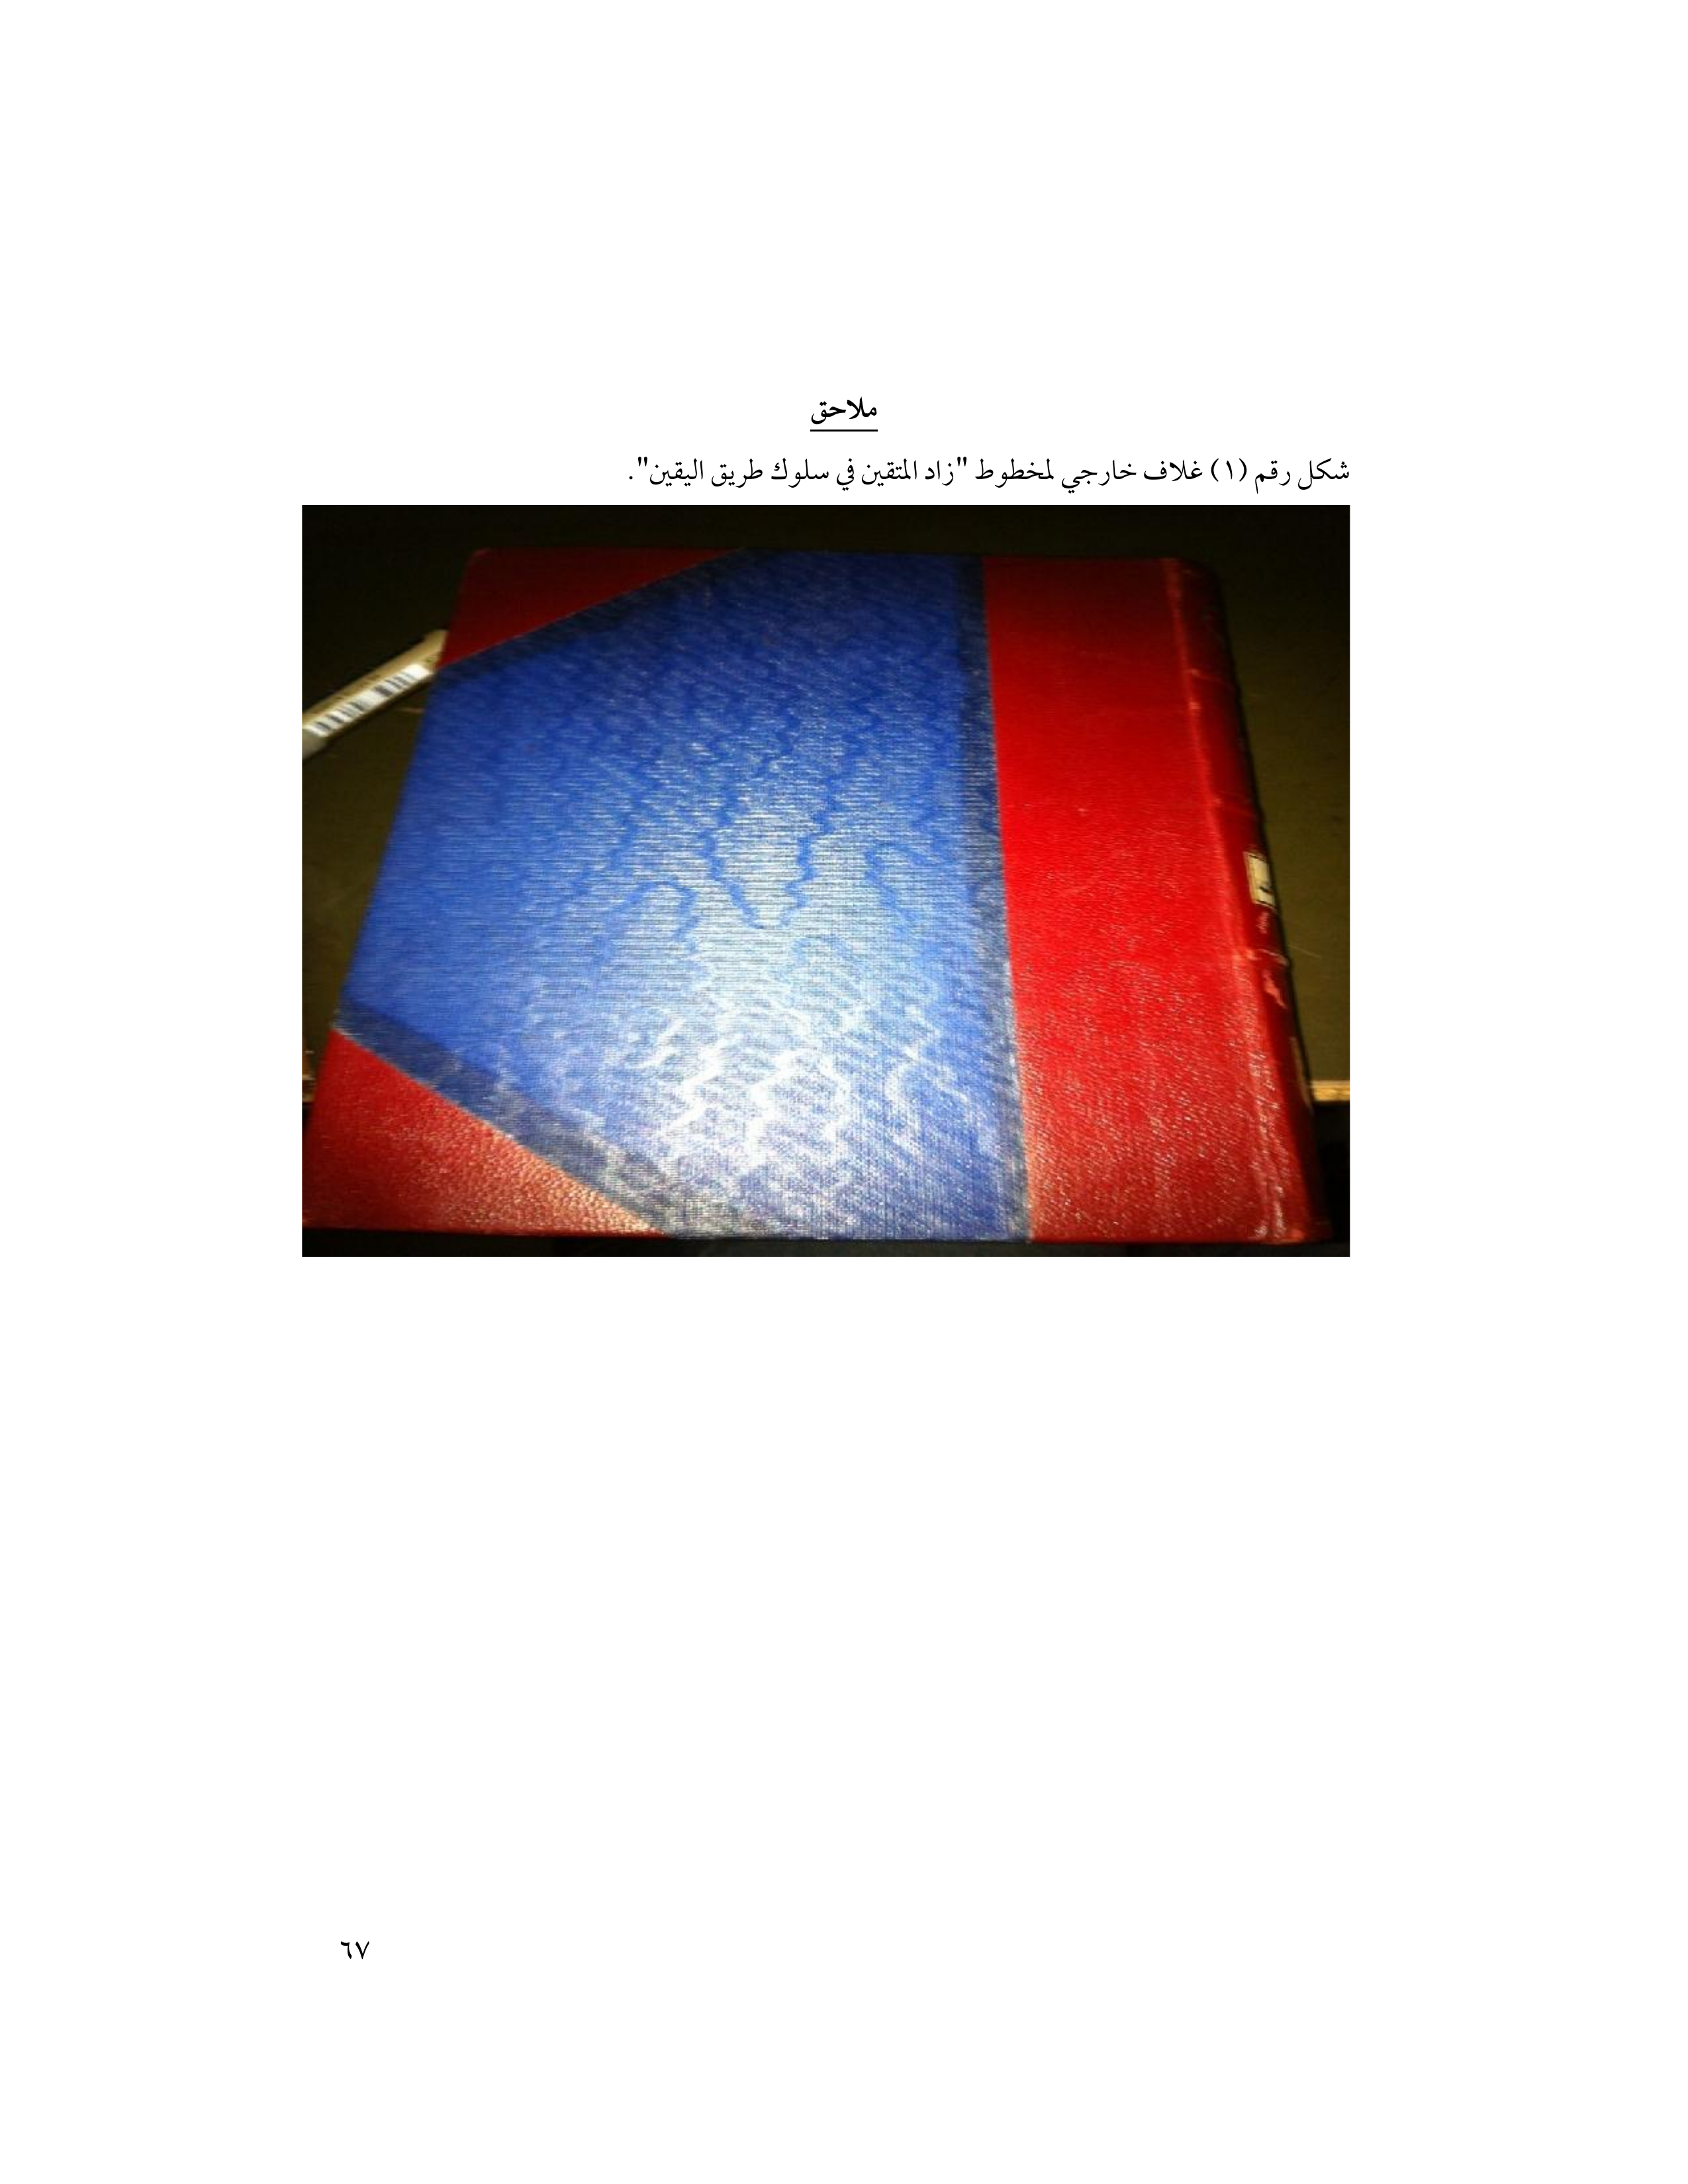 ملاحق
شكل رقم (١) غلاف خارجي لمخطوط "زاد المتقين في سلوك طريق اليقين".
٦٧